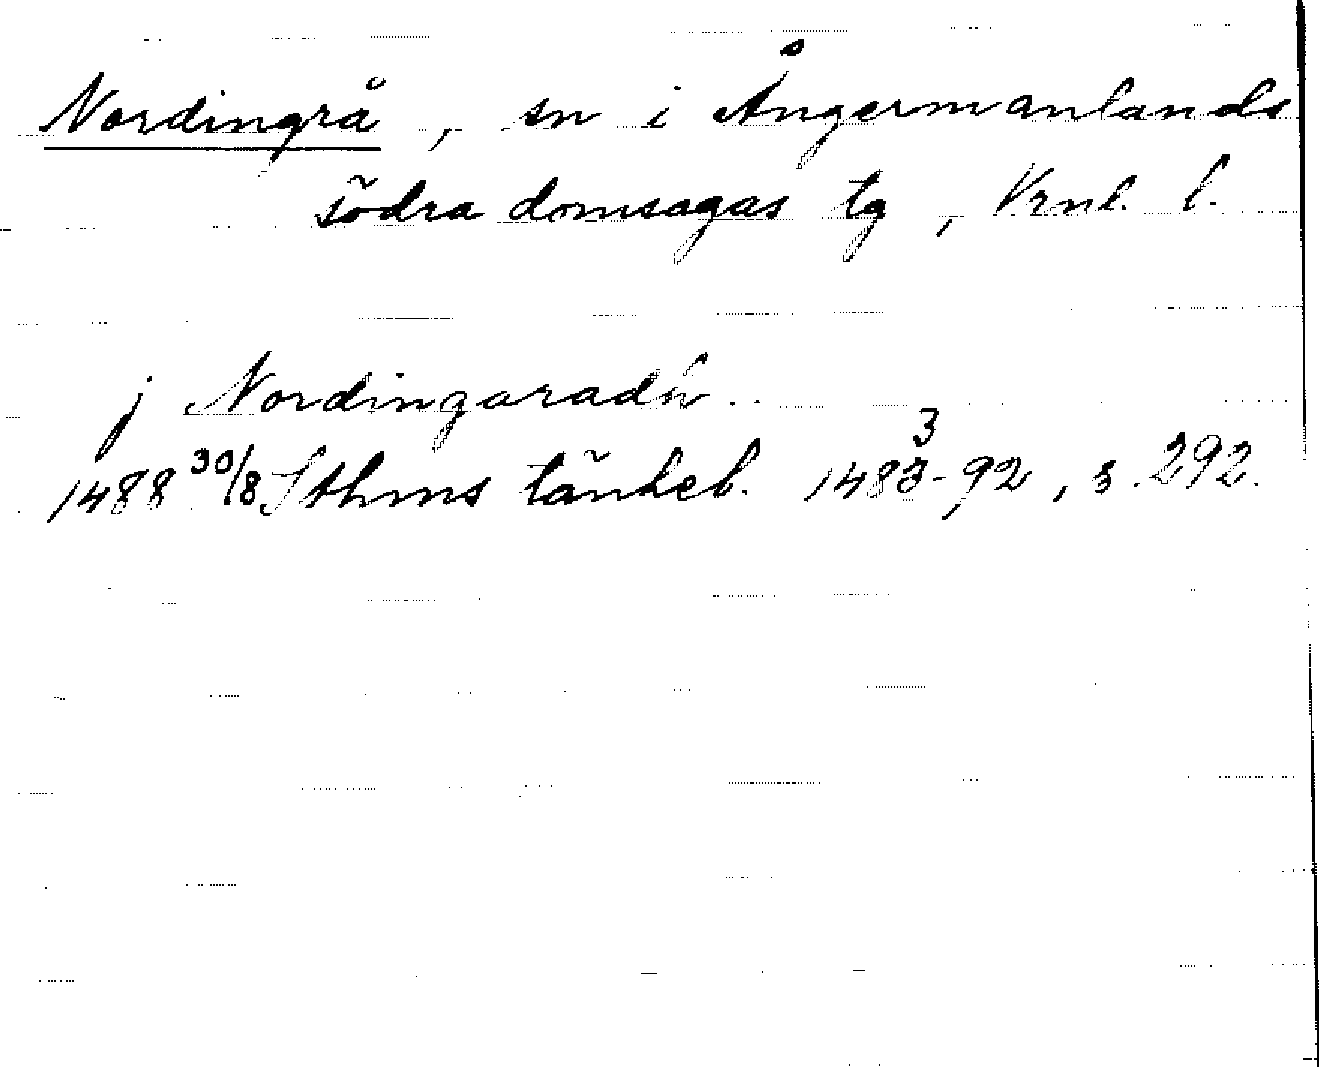 Nordingrå, sn i Ångermanlands
södra domsagas tg, Vrnl. l.
j Nordingaradh
1488 30/8 Sthms tänkeb. 1483-92, s. 292.